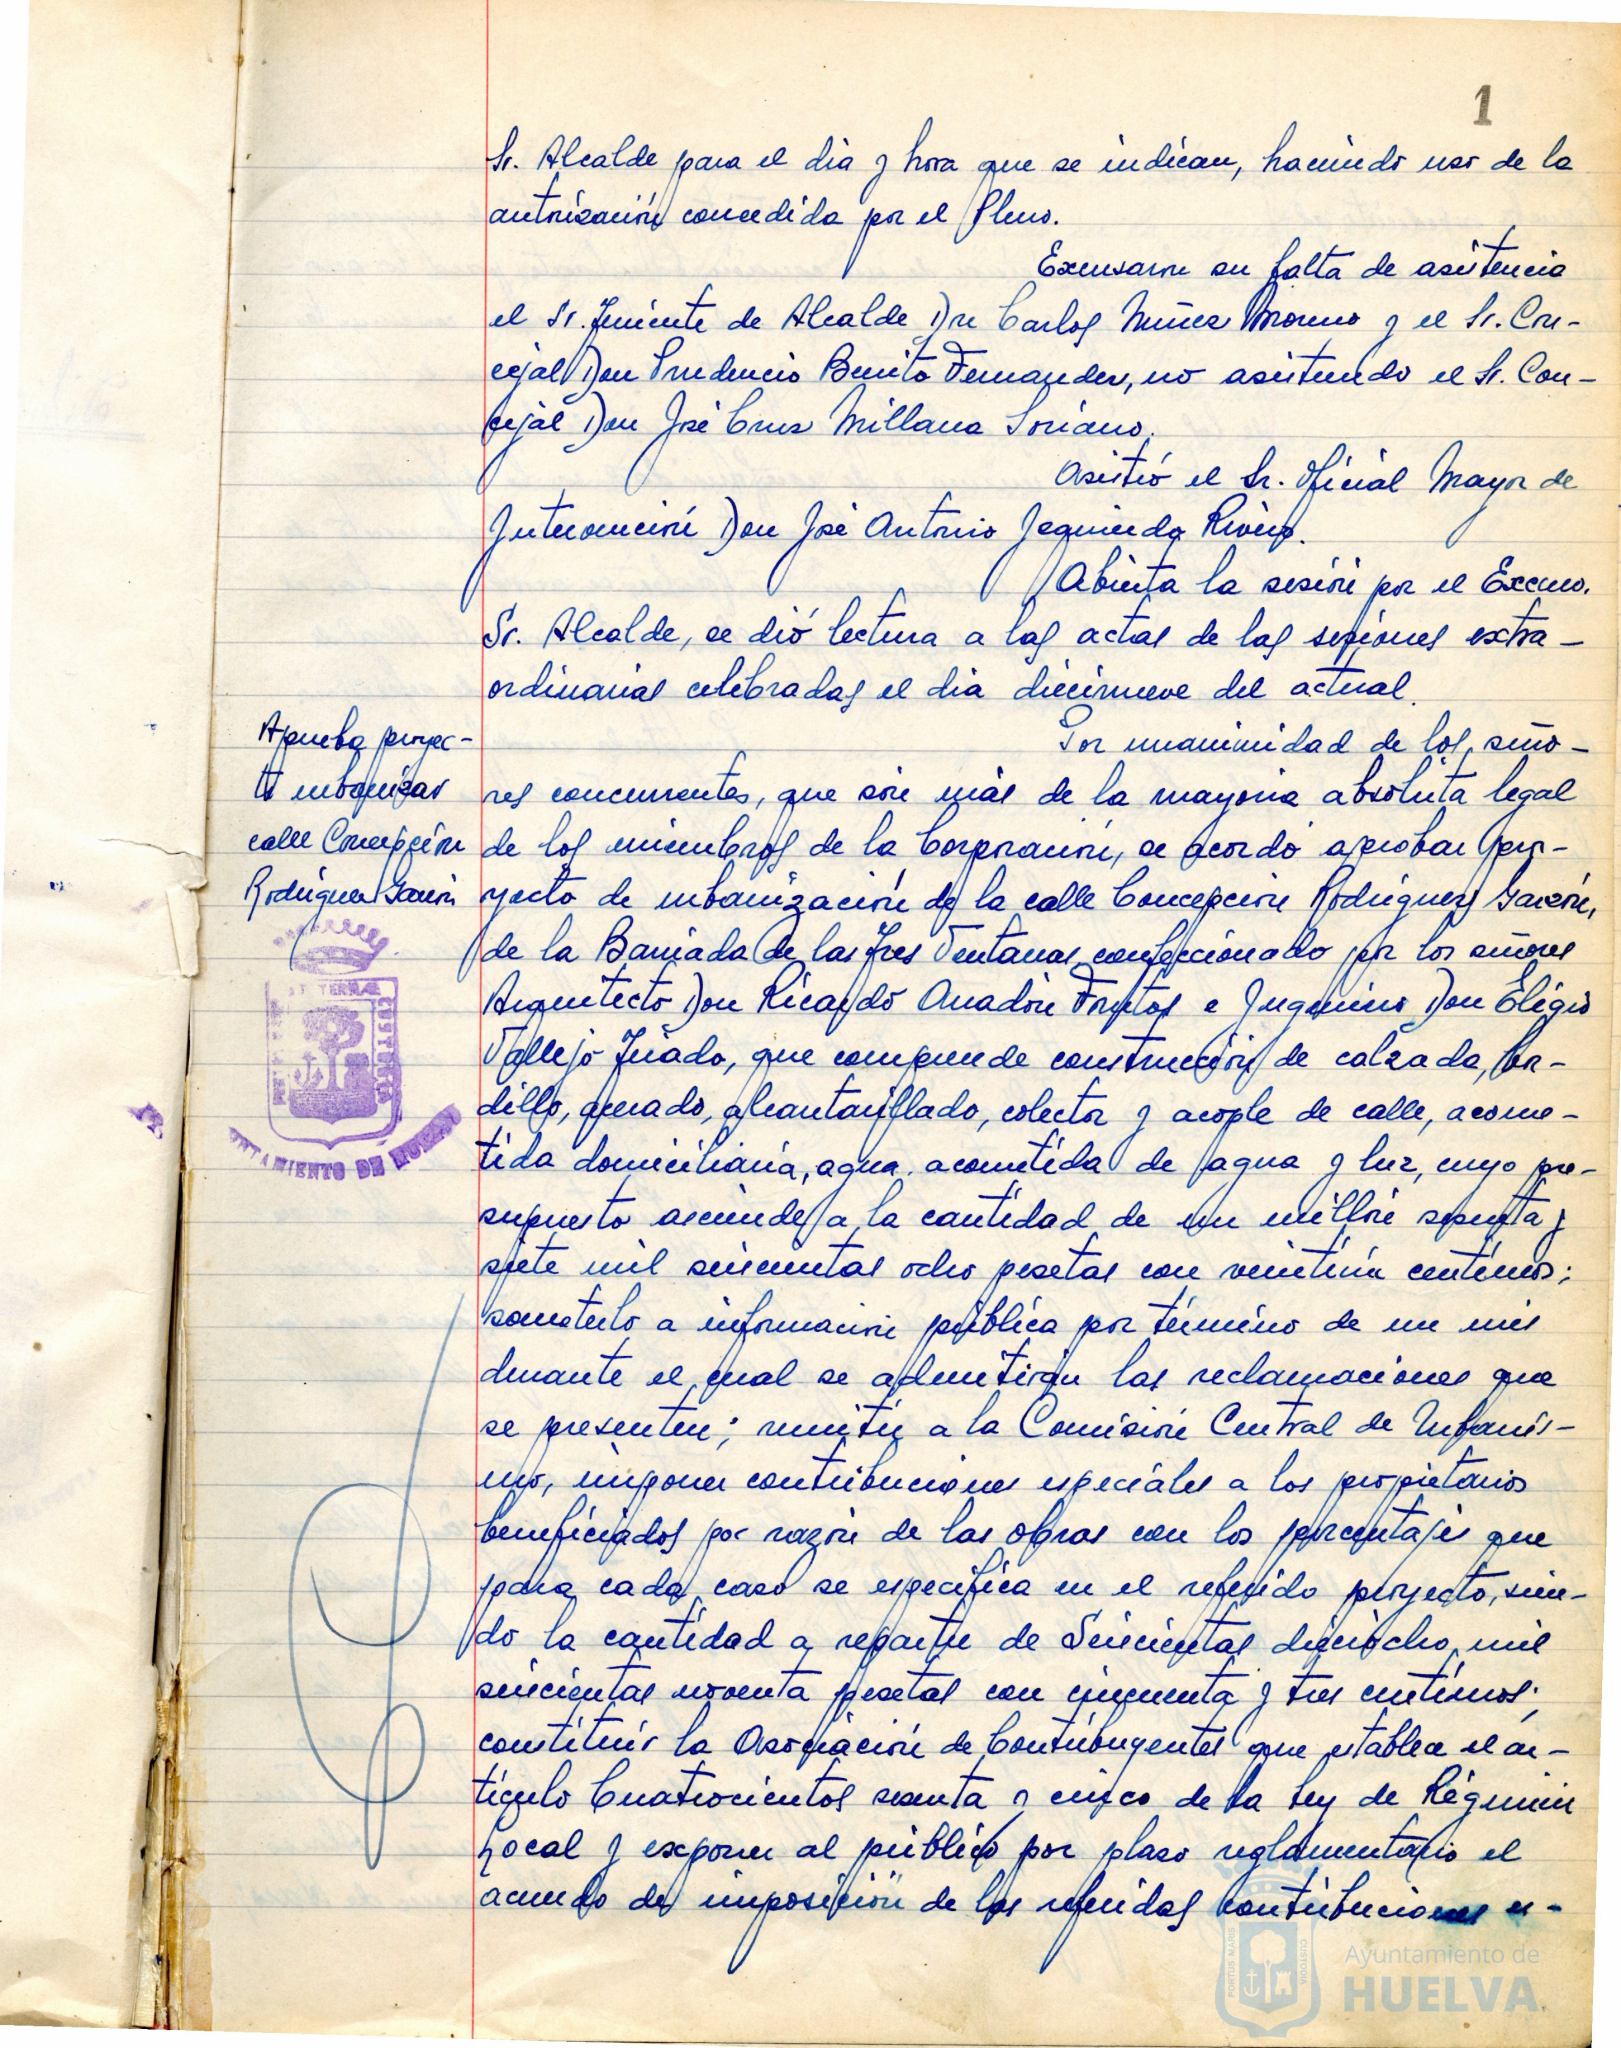 1
Sr. Alcalde para el dia y hora que se indican, haciendo uso de la
autorización concedida por el Pleno.
Excusaron su falta de asistencia
el Sr. Teniente de Alcalde Don Carlos Nuñez Moreno y el Sr. Con-
cejal Don Prudencio Benito Fernandez, no asistiendo el Sr. Con-
cejal Don José Cruz Millana Soriano.
Asistió el Sr. Oficial Mayor de
Intervención Don José Antonio Izquierdo Rivero.
Abierta la sesión por el Excmo.
Sr. Alcalde, se dió lectura a las actas de las sesiones extra-
ordinarias celebradas el dia diecinueve del actual.
Aprueba proyec-
to urbanizar
calle Concepción
Rodríguez Garzón
Por unanimidad de los seño-
res concurrentes, que son más de la mayoria absoluta legal
de los miembros de la Corporación, se acordó aprobar pro-
yecto de urbanización de la calle Concepción Rodríguez Garzón,
de la Barriada de las Tres Ventanas, confeccionado por los señores
Arquitecto Don Ricardo Anadón Frutos e Ingeniero Don Eligio
Vallejo Tirado, que comprende construcción de calzada, bor-
dillo, acerado, alcantarillado, colector y acople de calle, acome-
tida domiciliaria, agua, acometida de agua y luz, cuyo pre-
supuesto asciende a la cantidad de un millón sesenta y
siete mil seiscientas ocho pesetas con veintiún centimos;
someterlo a información pública por término de un mes
durante el cual se admitirán las reclamaciones que
se presenten; remitir a la Comisión Central de Urbanis-
mo, imponer contribuciones especiales a los propietarios
beneficiados por razón de las obras con los porcentajes que
para cada caso se especifica en el referido proyecto, sien-
do la cantidad a repartir de Seiscientas dieciocho mil
seiscientas noventa pesetas con cincuenta y tres centimos;
constituir la Asociación de Contribuyentes que establece el ar-
tículo Cuatrocientos sesenta y cinco de la Ley de Régimen
Local y exponer al público por plazo reglamentario el
acuerdo de imposición de las referidas contribuciones es-
AYUNTAMIENTO DE HUELVA
PORTUS MARIS
CUSTODIA
Ayuntamiento de
HUELVA